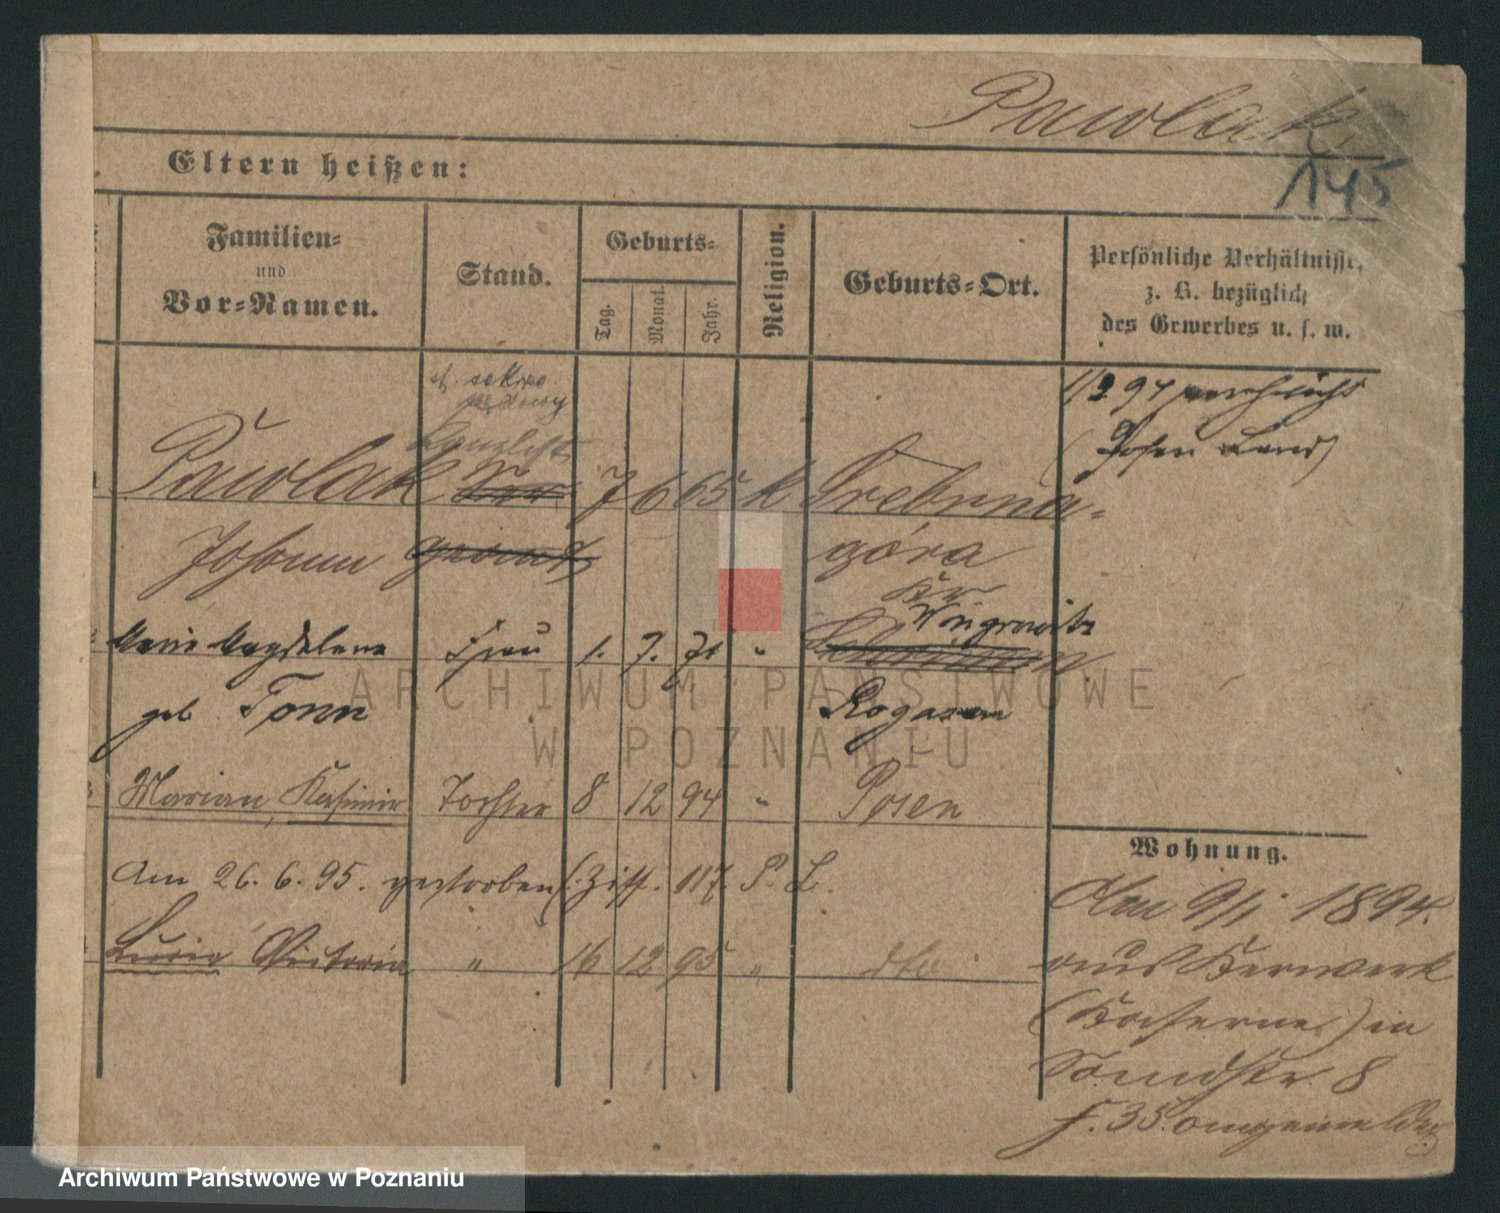 Pawlak
145
Eltern heißen:
Familien=
und
Vor=Namen.
Stand.
Geburts=
Tag.
Monat.
Jahr.
Religion.
Geburts=Ort.
Persönliche Verhältnisse,
z. B. bezüglich
des Gewerbes u. s. w.
Kanzlist
Pawlak
7 6 65 k Srebrna=
Johann
góra
Kr
Wongrowitz
Marie Magdalena Frau 1. 7. 71 "
geb Tonn
Rogasen
Marian, Kasimir Tochter 8 12 94 " Posen
Am 26. 6. 95. gestorben (: Ziff. 117. P. L.
Lucia Victoria " 16 12 95 " dto
(Posen Land)
Wohnung.
Am 9/1 1894.
aus Bernwerk
(Kaserne) in
8
f. 35. angemeldet
ARCHIWUM PAŃSTWOWE
W POZNANIU
Archiwum Państwowe w Poznaniu